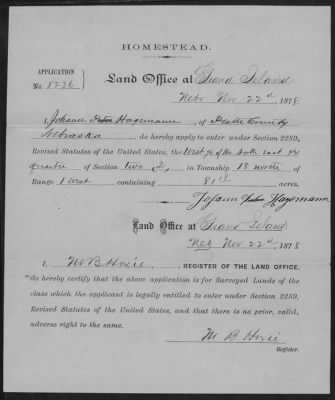 HOMESTEAD.
APPLICATION
No. 8226
Land Office at Grand Island
Nebr Nov 22d, 1878
I, Johann Hagemann of Platte County
Nebraska do hereby apply to enter, under Section 2289,
Revised Statutes of the United States, the West ½ of the South east ¼
quarter of Section two 2, in Township 18 north of
Range 1 West containing 81 acres.
Johann Hagemann
Land Office at Grand Island
Neb Nov 22d, 1878
I, M B Hoxie, REGISTER OF THE LAND OFFICE,
do hereby certify that the above application is for Surveyed Lands of the
class which the applicant is legally entitled to enter under Section 2289,
Revised Statutes of the United States, and that there is no prior, valid,
adverse right to the same.
M B Hoxie
Register.